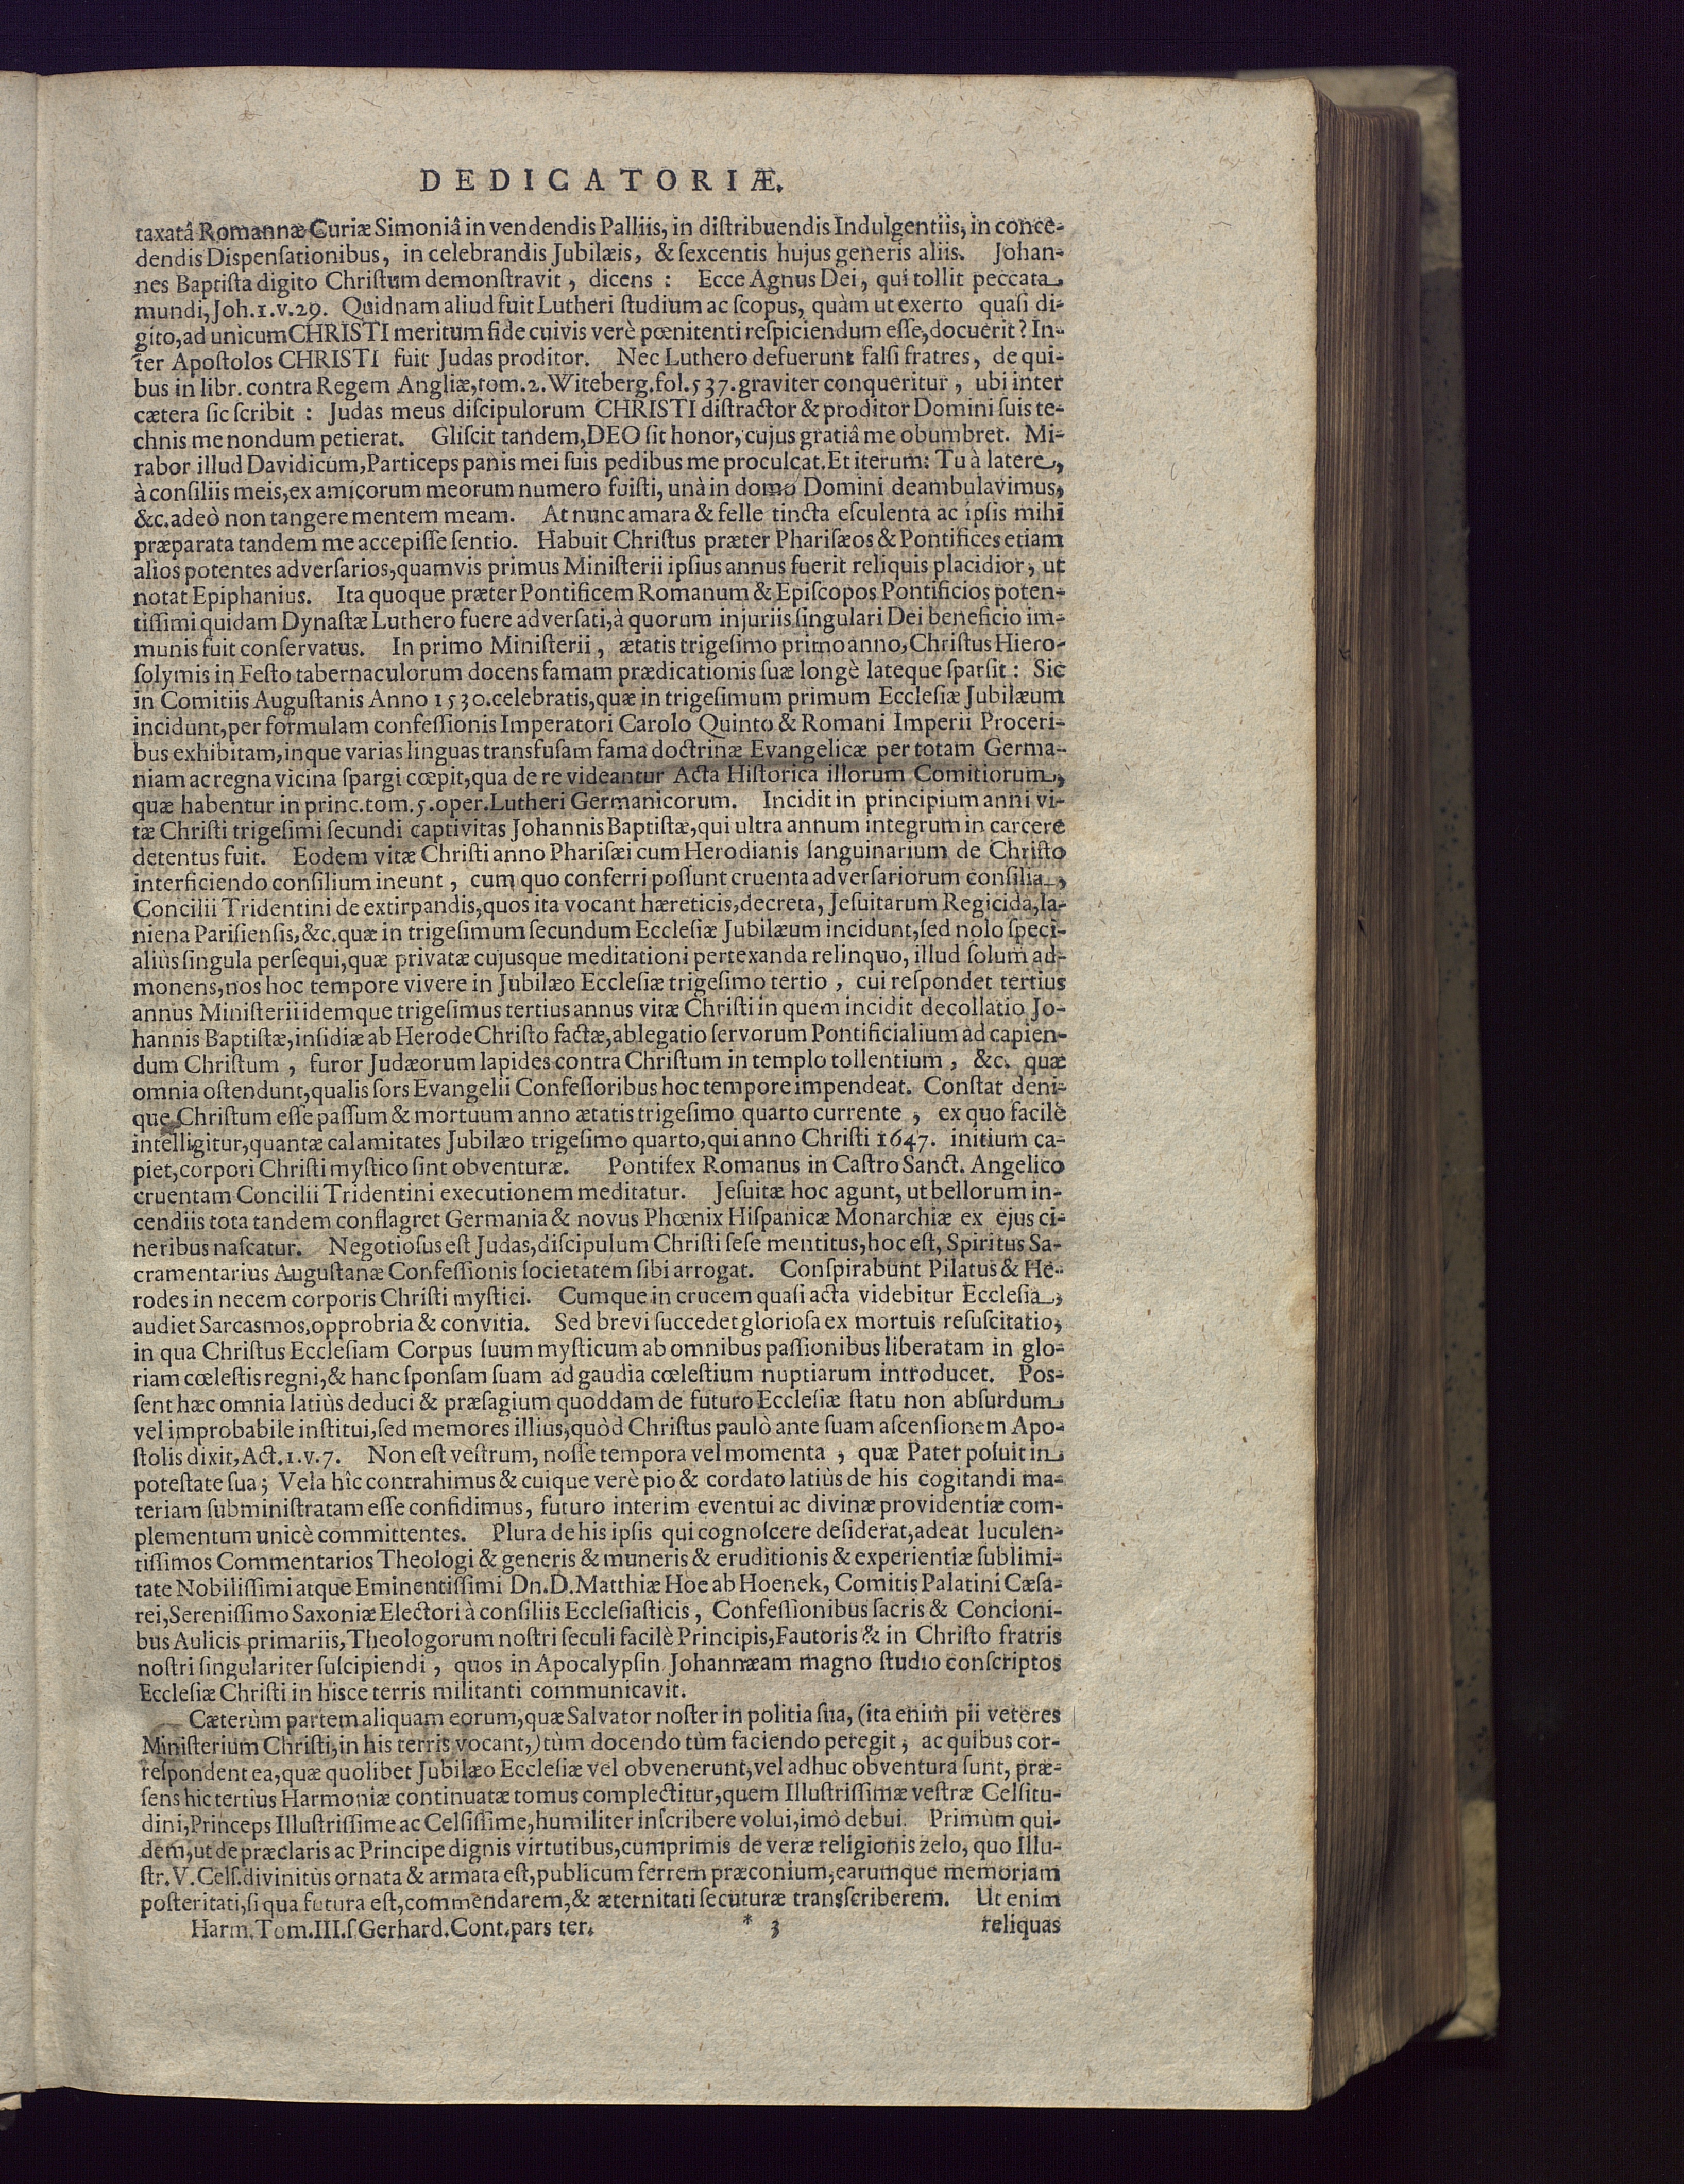 DEDICATORIÆ.
taxatâ Romannæ Curiæ Simoniâ in vendendis Palliis, in diſtribuendis Indulgentiis, in conce-
dendis Diſpenſationibus, in celebrandis Jubilæis, & ſexcentis hujus generis aliis. Johan-
nes Baptiſta digito Chriſtum demonſtravit, dicens : Ecce Agnus Dei, qui tollit peccata
mundi, Joh. 1. v. 29. Quidnam aliud fuit Lutheri ſtudium ac ſcopus, quàm ut exerto quaſi di-
gito, ad unicum CHRISTI meritum fide cuivis verè pœnitenti reſpiciendum eſſe, docuerit? In-
ter Apoſtolos CHRISTI fuit Judas proditor. Nec Luthero defuerunt falſi fratres, de qui-
bus in libr. contra Regem Angliæ, tom. 2. Witeberg. fol. 537. graviter conqueritur, ubi inter
cætera ſic ſcribit : Judas meus diſcipulorum CHRISTI diſtractor & proditor Domini ſuis te-
chnis me nondum petierat. Gliſcit tandem, DEO ſit honor, cujus gratiâ me obumbret. Mi-
rabor illud Davidicum, Particeps panis mei ſuis pedibus me proculcat. Et iterum: Tu à latere,
à conſiliis meis, ex amicorum meorum numero fuiſti, unà in domo Domini deambulavimus,
&c. adeò non tangere mentem meam. At nunc amara & felle tincta eſculenta ac ipſis mihi
præparata tandem me accepiſſe ſentio. Habuit Chriſtus præter Phariſæos & Pontifices etiam
alios potentes adverſarios, quamvis primus Miniſterii ipſius annus fuerit reliquis placidior, ut
notat Epiphanius. Ita quoque præter Pontificem Romanum & Epiſcopos Pontificios poten-
tiſſimi quidam Dynaſtæ Luthero fuere adverſati, à quorum injuriis ſingulari Dei beneficio im-
munis fuit conſervatus. In primo Miniſterii, ætatis trigeſimo primo anno, Chriſtus Hiero-
ſolymis in Feſto tabernaculorum docens famam prædicationis ſuæ longè lateque ſparſit : Sic
in Comitiis Auguſtanis Anno 1530. celebratis, quæ in trigeſimum primum Eccleſiæ Jubilæum
incidunt, per formulam confeſſionis Imperatori Carolo Quinto & Romani Imperii Proceri-
bus exhibitam, inque varias linguas transfuſam fama doctrinæ Evangelicæ per totam Germa-
niam ac regna vicina ſpargi cœpit, qua de re videantur Acta Hiſtorica illorum Comitiorum,
quæ habentur in princ. tom. 5. oper. Lutheri Germanicorum. Incidit in principium anni vi-
tæ Chriſti trigeſimi ſecundi captivitas Johannis Baptiſtæ, qui ultra annum integrum in carcere
detentus fuit. Eodem vitæ Chriſti anno Phariſæi cum Herodianis ſanguinarium de Chriſto
interficiendo conſilium ineunt, cum quo conferri poſſunt cruenta adverſariorum conſilia,
Concilii Tridentini de extirpandis, quos ita vocant hæreticis, decreta, Jeſuitarum Regicidà, la-
niena Pariſienſis, &c. quæ in trigeſimum ſecundum Eccleſiæ Jubilæum incidunt, ſed nolo ſpeci-
aliùs ſingula perſequi, quæ privatæ cujusque meditationi pertexanda relinquo, illud ſolum ad-
monens, nos hoc tempore vivere in Jubilæo Eccleſiæ trigeſimo tertio, cui reſpondet tertius
annus Miniſterii idemque trigeſimus tertius annus vitæ Chriſti in quem incidit decollatio Jo-
hannis Baptiſtæ, inſidiæ ab Herode Chriſto factæ, ablegatio ſervorum Pontificialium ad capien-
dum Chriſtum, furor Judæorum lapides contra Chriſtum in templo tollentium, &c. quæ
omnia oſtendunt, qualis ſors Evangelii Confeſſoribus hoc tempore impendeat. Conſtat deni-
que Chriſtum eſſe paſſum & mortuum anno ætatis trigeſimo quarto currente, ex quo facilè
intelligitur, quantæ calamitates Jubilæo trigeſimo quarto, qui anno Chriſti 1647. initium ca-
piet, corpori Chriſti myſtico ſint obventuræ. Pontifex Romanus in Caſtro Sanct. Angelico
cruentam Concilii Tridentini executionem meditatur. Jeſuitæ hoc agunt, ut bellorum in-
cendiis tota tandem conflagret Germania & novus Phœnix Hiſpanicæ Monarchiæ ex ejus ci-
neribus naſcatur. Negotioſus eſt Judas, diſcipulum Chriſti ſeſe mentitus, hoc eſt, Spiritus Sa-
cramentarius Auguſtanæ Confeſſionis ſocietatem ſibi arrogat. Conſpirabunt Pilatus & He-
rodes in necem corporis Chriſti myſtici. Cumque in crucem quaſi acta videbitur Eccleſia,
audiet Sarcasmos, opprobria & convitia. Sed brevi ſuccedet glorioſa ex mortuis reſuſcitatio,
in qua Chriſtus Eccleſiam Corpus ſuum myſticum ab omnibus paſſionibus liberatam in glo-
riam cœleſtis regni, & hanc ſponſam ſuam ad gaudia cœleſtium nuptiarum introducet. Pos-
ſent hæc omnia latiùs deduci & præſagium quoddam de futuro Eccleſiæ ſtatu non abſurdum
vel improbabile inſtitui, ſed memores illius, quòd Chriſtus paulò ante ſuam aſcenſionem Apo-
ſtolis dixit, Act. 1. v. 7. Non eſt veſtrum, noſſe tempora vel momenta, quæ Pater poſuit in
poteſtate ſua; Vela hîc contrahimus & cuique verè pio & cordato latiùs de his cogitandi ma-
teriam ſubminiſtratam eſſe confidimus, futuro interim eventui ac divinæ providentiæ com-
plementum unicè committentes. Plura de his ipſis qui cognoſcere deſiderat, adeat luculen-
tiſſimos Commentarios Theologi & generis & muneris & eruditionis & experientiæ ſublimi-
tate Nobiliſſimi atque Eminentiſſimi Dn. D. Matthiæ Hoe ab Hoenek, Comitis Palatini Cæſa-
rei, Sereniſſimo Saxoniæ Electori à conſiliis Eccleſiaſticis, Confeſſionibus ſacris & Concioni-
bus Aulicis primariis, Theologorum noſtri ſeculi facilè Principis, Fautoris & in Chriſto fratris
noſtri ſingulariter ſuſcipiendi, quos in Apocalypſin Johannæam magno ſtudio conſcriptos
Eccleſiæ Chriſti in hisce terris militanti communicavit.
Cæterùm partem aliquam eorum, quæ Salvator noſter in politia ſua, (ita enim pii veteres
Miniſterium Chriſti, in his terris vocant,) tùm docendo tùm faciendo peregit, ac quibus cor-
reſpondent ea, quæ quolibet Jubilæo Eccleſiæ vel obvenerunt, vel adhuc obventura ſunt, præ-
ſens hic tertius Harmoniæ continuatæ tomus complectitur, quem Illuſtriſſimæ veſtræ Celſitu-
dini, Princeps Illuſtriſſime ac Celſiſſime, humiliter inſcribere volui, imò debui. Primùm qui-
dem, ut de præclaris ac Principe dignis virtutibus, cumprimis de veræ religionis zelo, quo Illu-
ſtr. V. Celſ. divinitùs ornata & armata eſt, publicum ferrem præconium, earumque memoriam
poſteritati, ſi qua futura eſt, commendarem, & æternitati ſecuturæ transſcriberem. Ut enim
Harm. Tom. III. ſ Gerhard. Cont. pars ter. * 3 reliquas